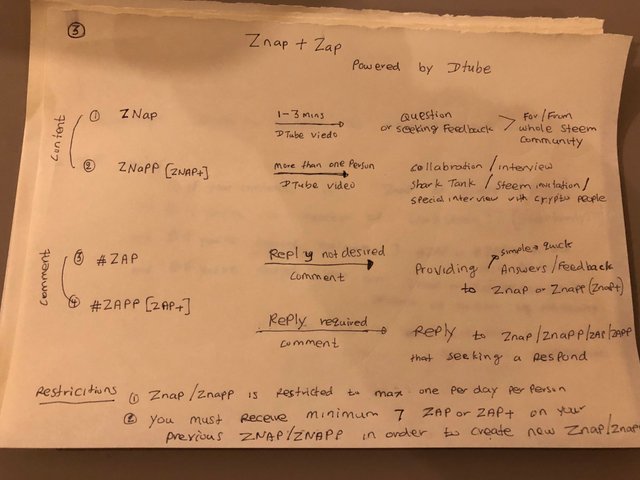 ③
Znap + Zap
Powered by Dtube
Content
① ZNap
1-3 mins
DTube Viedo
Question
or seeking Feedback
For/From
whole Steem
Community
② ZNaPP [ZNAP+]
more than one Person
DTube video
collabration / interview
Shark Tank / Steem invitation /
special interview with crypto people
Comment
③ #ZAP
Reply not desired
comment
simple + quick
Providing Answers/Feedback
to Znap or Znapp (Znap+)
④ #ZAPP [ZAP+]
Reply required
comment
Reply to Znap/Znapp/ZAP/ZAPP
that seeking a Respond
Restricitions ① Znap/Znapp is Restricted to max one per day per Person
② you must Receive minimum 7 ZAP or ZAP+ on your
previous ZNAP/ZNAPP in order to create new Znap/Znap